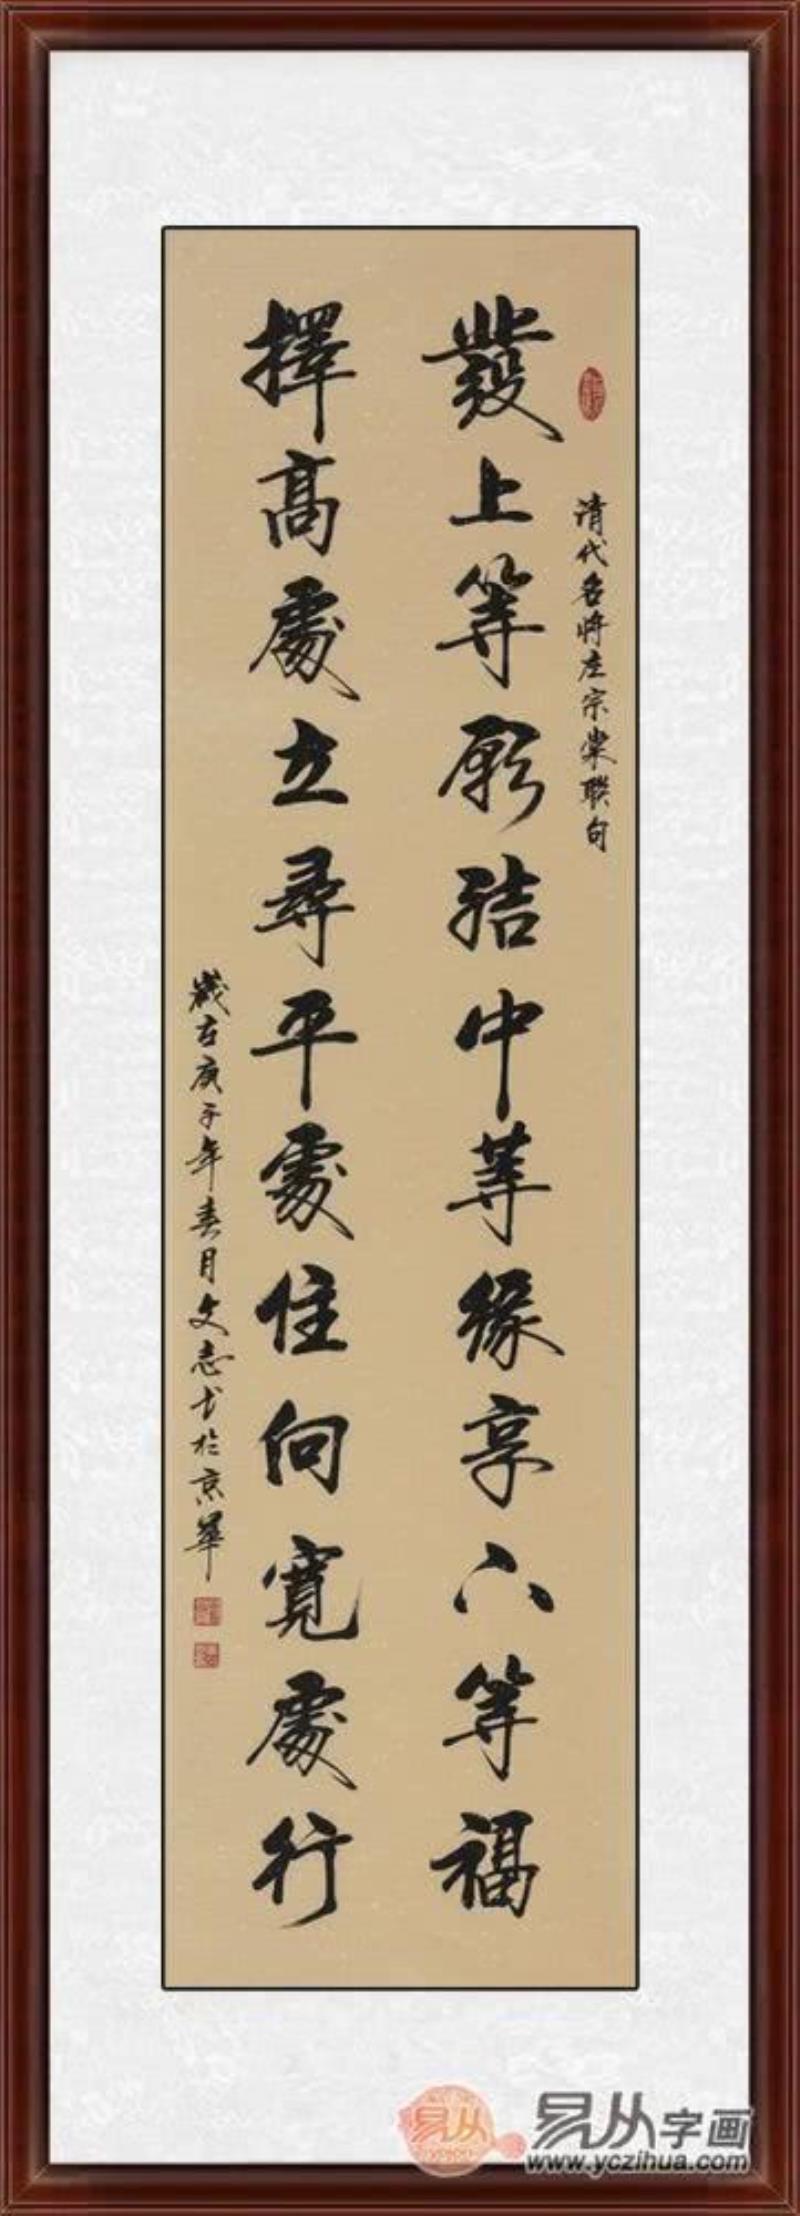 清代名将左宗棠聯句
發上等願結中等緣享下等福
擇高處立尋平處住向寬處行
歲在庚子年春月文志书於京華
易从
易从字画
www.yczihua.com